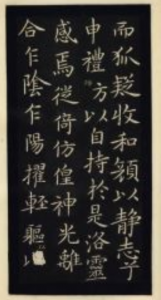 而狐疑收和顏以静志兮
申禮防以自持於是洛靈
感焉徙倚仿偟神光離
合乍陰乍陽擢輕軀以